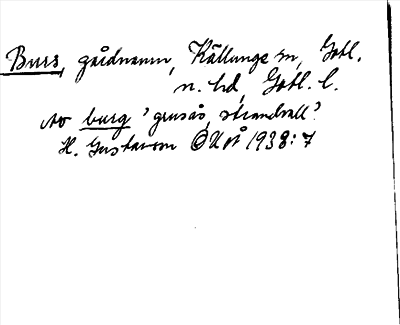 Burs, gårdnamn, Källunge sn, Gotl.
n. hd, Gotl. l.
Av burg 'grusås, strandvall'?
H. Gustavson OUÅ 1938: 7